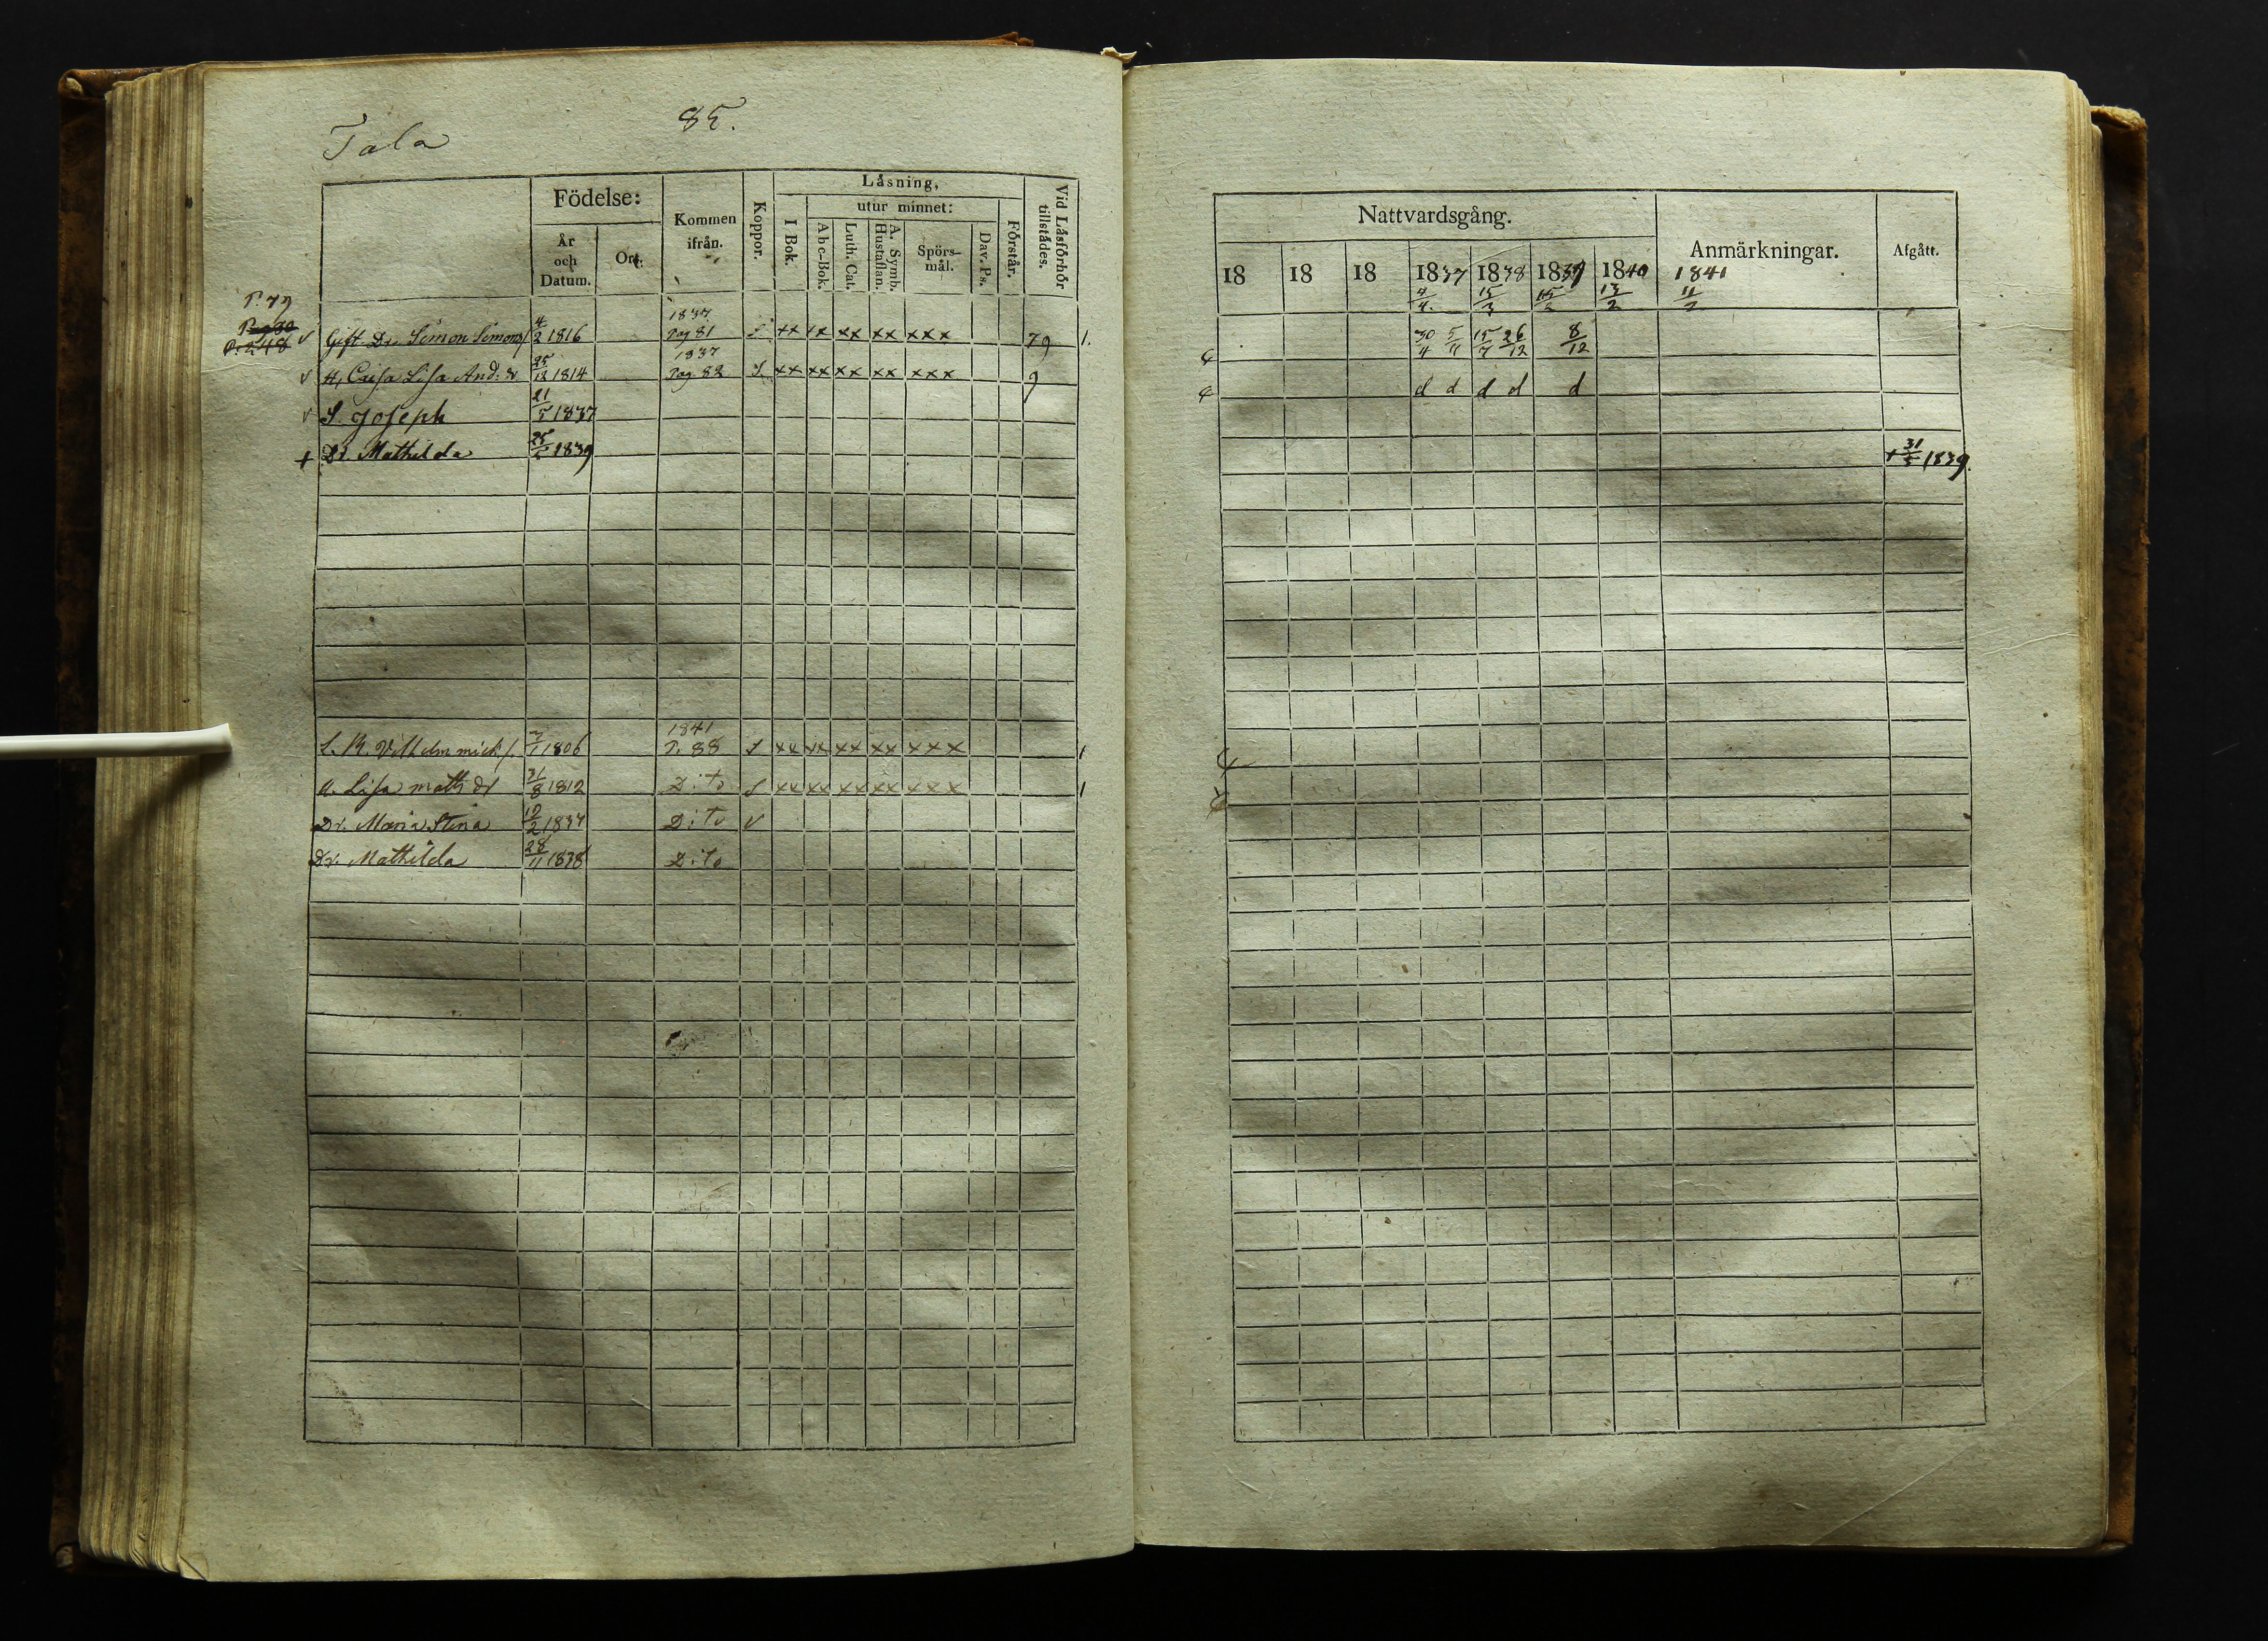 Tala
85.
Födelse:
År och Datum.
Ort.
Kommen ifrån.
Koppor.
Läsning,
I Bok.
utur minnet:
Abc-Bok.
Luth. Cat.
A. Symb. Hustaflan.
Spörs-mål.
Dav. Ps.
Förstår.
Vid Läsförhör tillstådes.
P. 79
P. 248
Gift Dr. Simon Simons 4/2 1816 1837 Pag 81 S xx xx xx xx xxx 79 1.
H, Cajsa Lisa And: dr 25/12 1814 1837 Pag. 82 S xx xx xx xx xxx 9
S. Joseph 21/5 1837
+ Dr Mathilda 25/5 1839
L. R. Vilhelm mick 3/1 1806 1841 P. 88 S xx xx xx xx xxx 1
H. Lisa math dr 31/8 1812 D:to S xx xx xx xx xxx 1
Dr. Maria Stina 12/2 1837 D:to v
Dr. Mathilda 28/11 1838 D:to
Nattvardsgång.
Anmärkningar.
Afgått.
18 18 18 1837 1838 1839 1840 1841
4/4. 15/3 15/2 13/2 11/2
30/4 5/11 15/7 26/12 8/12
d d d d d
+ 31/5 1839.